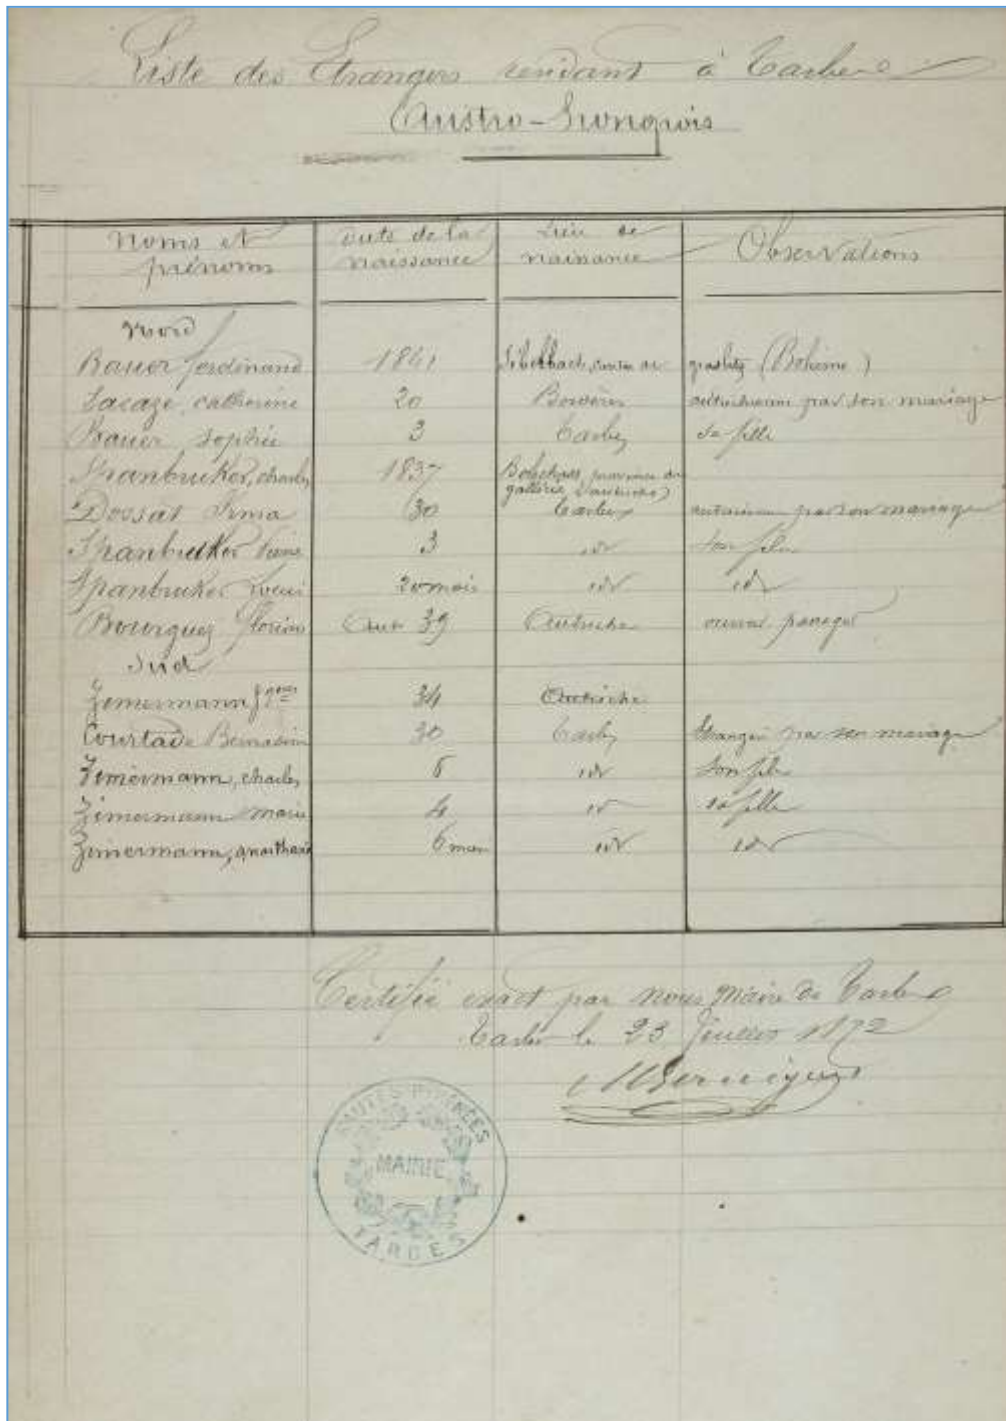 Liste des Etrangers résidant à Tarbes
Austro-Hongrois
Noms et prénoms
date de la naissance
Lieu de naissance
Observations
Nord
Bauer ferdinand 1841 graslitz (Bohême)
Lacaze, catherine 20 autrichienne par son mariage
Bauer, sophie 3 Tarbes sa fille
Spanbruker, charles 1837 province de
Dossat Irma 30 Tarbes autrichienne par son mariage
Spanbruker 3 id son fils
Spanbruker Louis 20 mois id id
Bourguez florian 39 Autriche
Sud
Zimermann 34 Autriche
Courtade Bernadine 30 Tarbes étrangère par son mariage
Zimermann, charles 6 id son fils
Zimermann marie 4 id sa fille
Zimermann, 6 mois id id
Certifié exact par nous Maire de Tarbes
Tarbes le 23 1872
HAUTES PYRÉNÉES
MAIRIE
TARBES